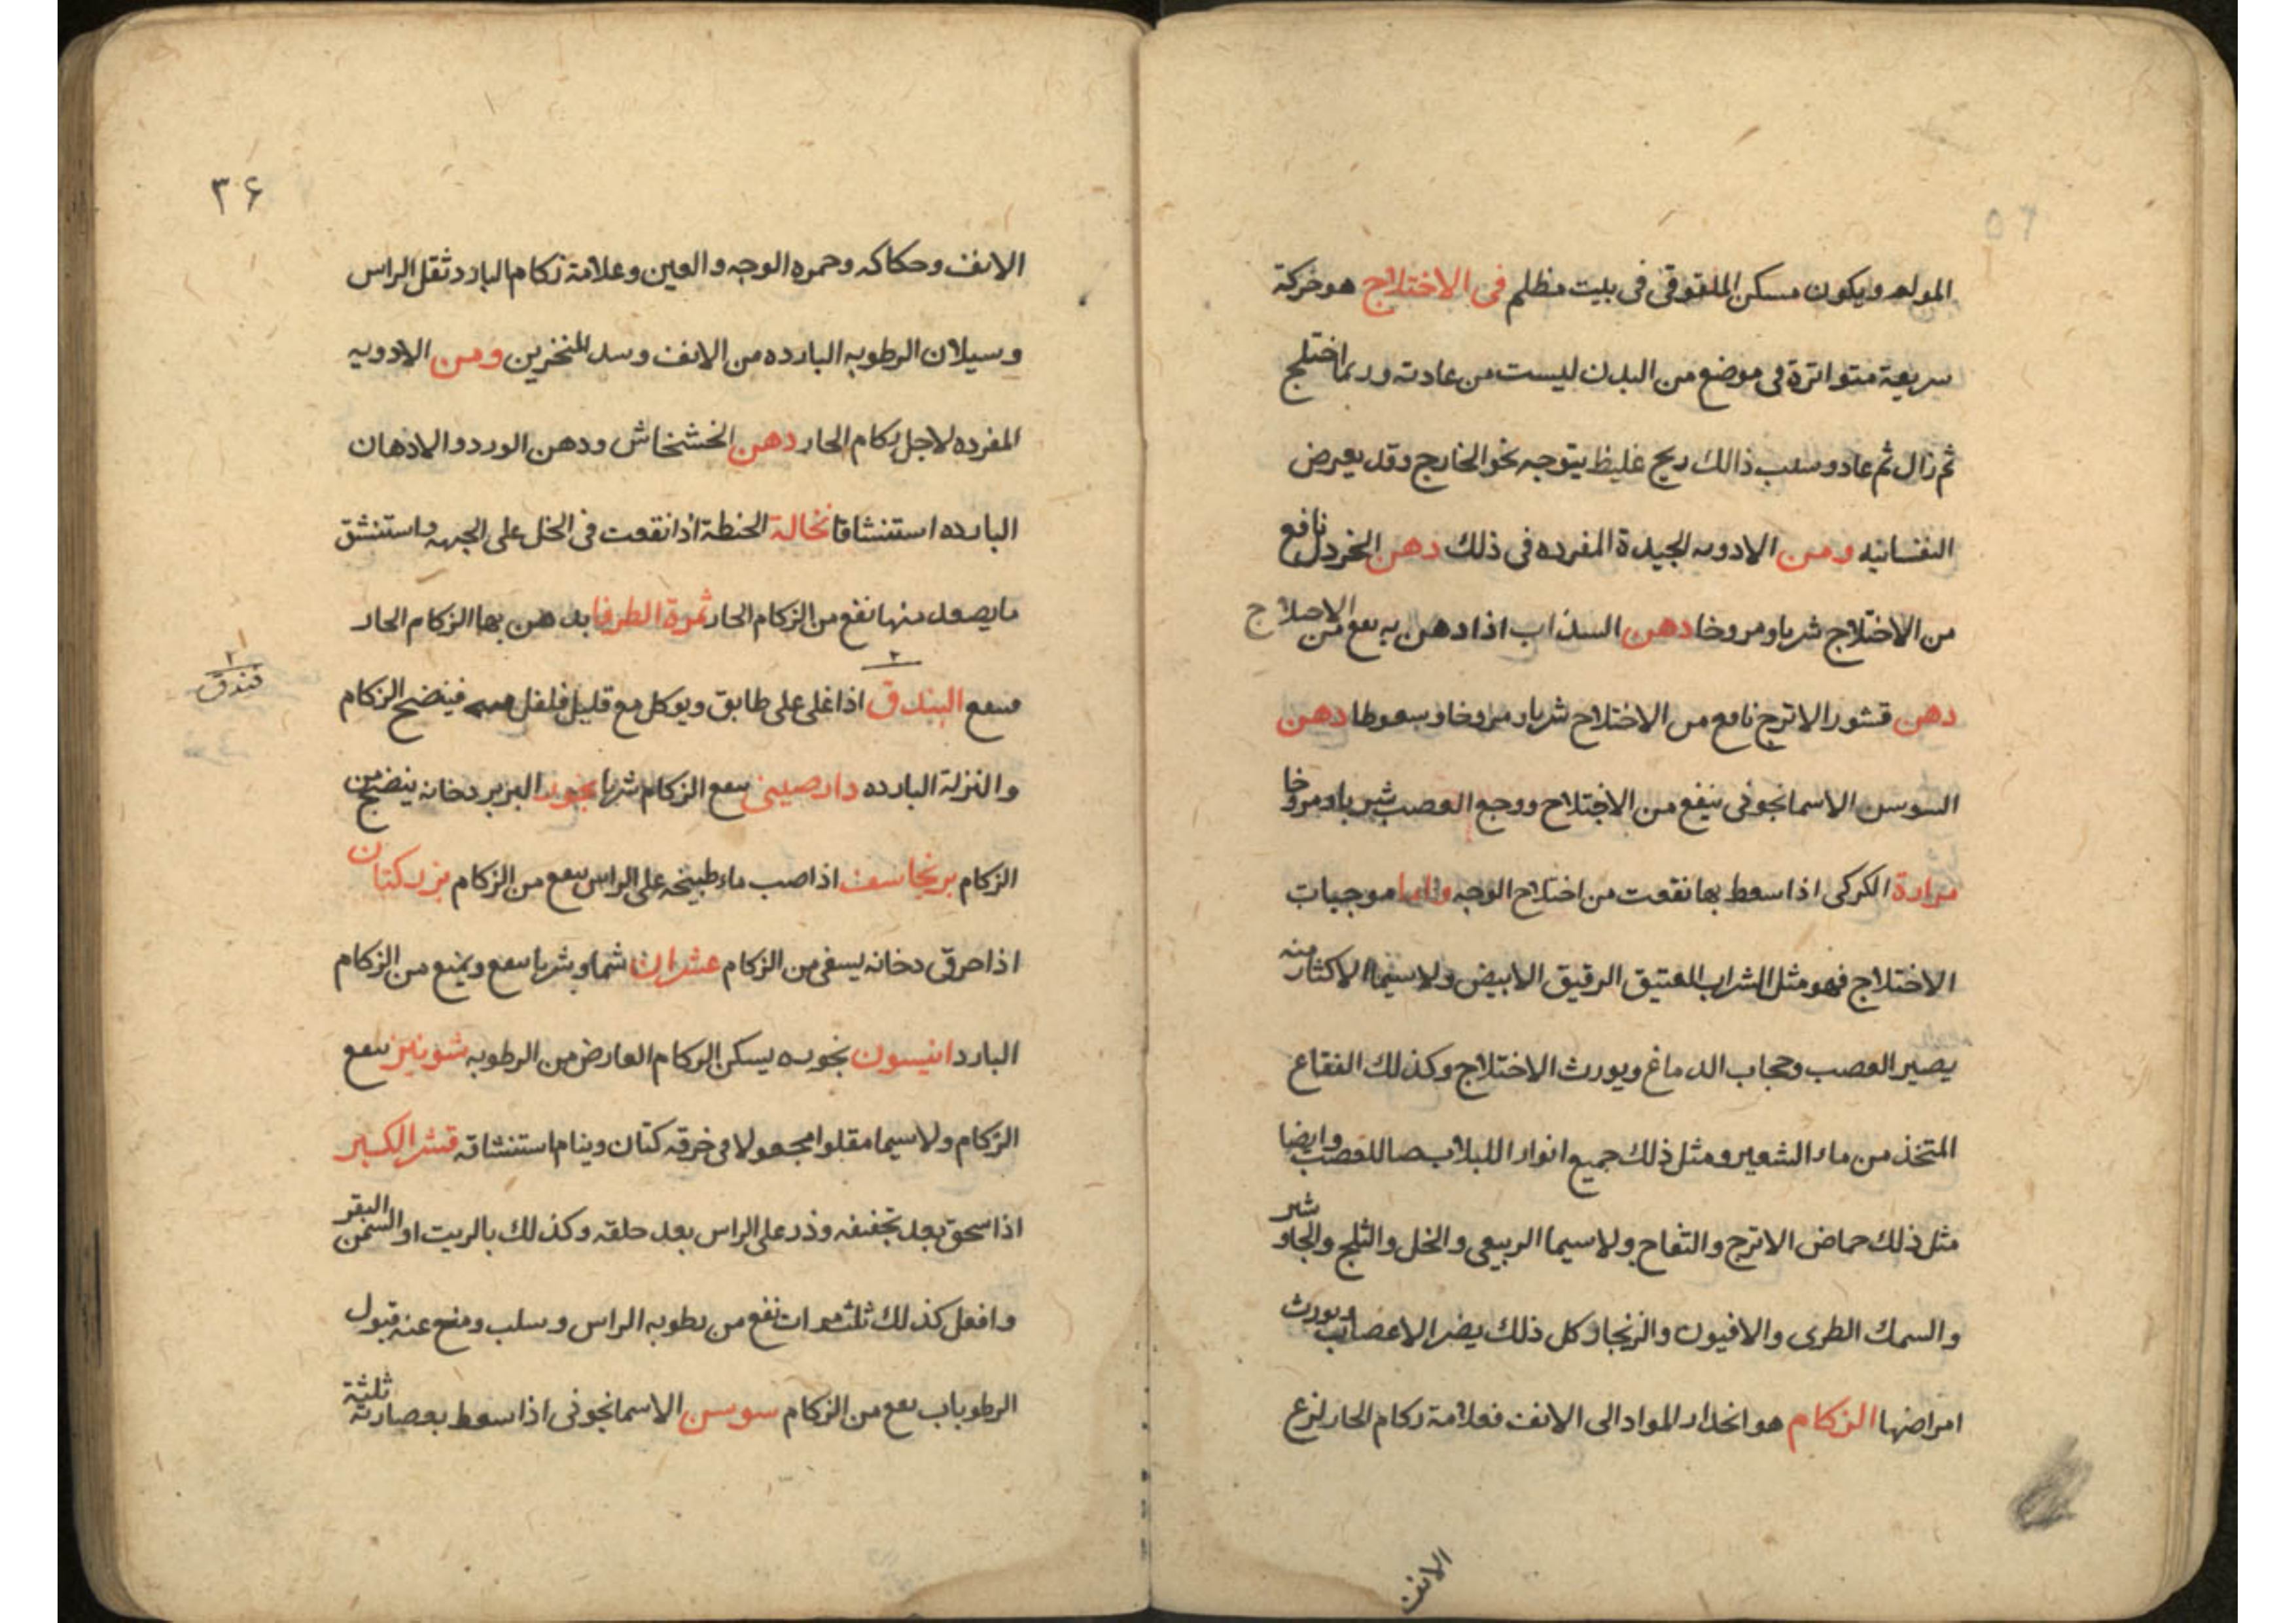 المواد ويكون مسكن الملقوق فى بيت مظلم فى الاختلاج هو حركة
سريعة متواترة فى موضع من البدن ليست من عادته وربما اختلج
ثم زال ثم عاد وسبب ذالك ريح غليظ يتوجه نحو الخارج وقد يعرض
النفسانيه ومن الادويه الجيدة المفرده فى ذلك دهن الخردل نافع
من الاختلاج شربا ومروخا دهن السذاب اذا دهن به نفع من الاختلاج
دهن قشور الاترج نافع من الاختلاج شربا ومروخا وسعوطا دهن
السوسن الاسمانجونى ينفع من الاختلاج ووجع العصب شربا ومروخا
مرارة الكركى اذا سعط بها نفعت من اختلاج الوجه واما موجبات
الاختلاج فهو مثل الشراب العتيق الرقيق الابيض ولا سيما الاكثار منه
يصير العصب وحجاب الدماغ ويورث الاختلاج وكذلك الفقاع
المتخذ من ماء الشعير ومثل ذلك جميع انوار اللبلاب للعصب وايضا
مثل ذلك حماض الاترج والتفاح ولا سيما الربيعى والخل والثلج والجاوشير
والسمك الطرى والافيون والزنجار وكل ذلك يضر الاعصاب ويورث
امراضها الزكام هو انحدار المواد الى الانف فعلامة زكام الحار لزع
الانف
٣۶
الانف وحكاكه وحمره الوجه والعين وعلامة زكام البارد ثقل الراس
وسيلان الرطوبه البارده من الانف وسد المنخرين ومن الادويه
المفرده لاجل زكام الحار دهن الخشخاش ودهن الورد والادهان
البارده استنشاقا نخالة الحنطة اذا نقعت فى الخل على الجبهه واستنشق
ما يصعد منها نفع من الزكام الحار ثمرة الطرفا يدهن بها الزكام الحار
فندق
ينفع البندق اذا غلى على طابق ويوكل مع قليل فلفل فينضج الزكام
والنزلة البارده دارصينى ينفع الزكام شربا بخور البزبر دخانه ينضج من
الزكام برنجاسف اذا صب ماء طبيخه على الراس ينفع من الزكام بزر كتان
اذا حرق دخانه يسفى من الزكام عشران شما وشربا ينفع ويمنع من الزكام
البارد انيسون بخوره يسكن الزكام العارض من الرطوبه شونيز ينفع
الزكام ولا سيما مقلوا مجعولا فى خرقه كتان وينام استنشاقه قشر الكبير
اذا سحق بعد تجفيفه وذر على الراس بعد حلقه وكذلك بالزيت او السمن البقر
وافعل كذلك ثلث مرات نفع من رطوبه الراس وسلب ومنع عنه قبول
الرطوبات نفع من الزكام سوسن الاسمانجونى اذا سعط بعصارته ثلثة